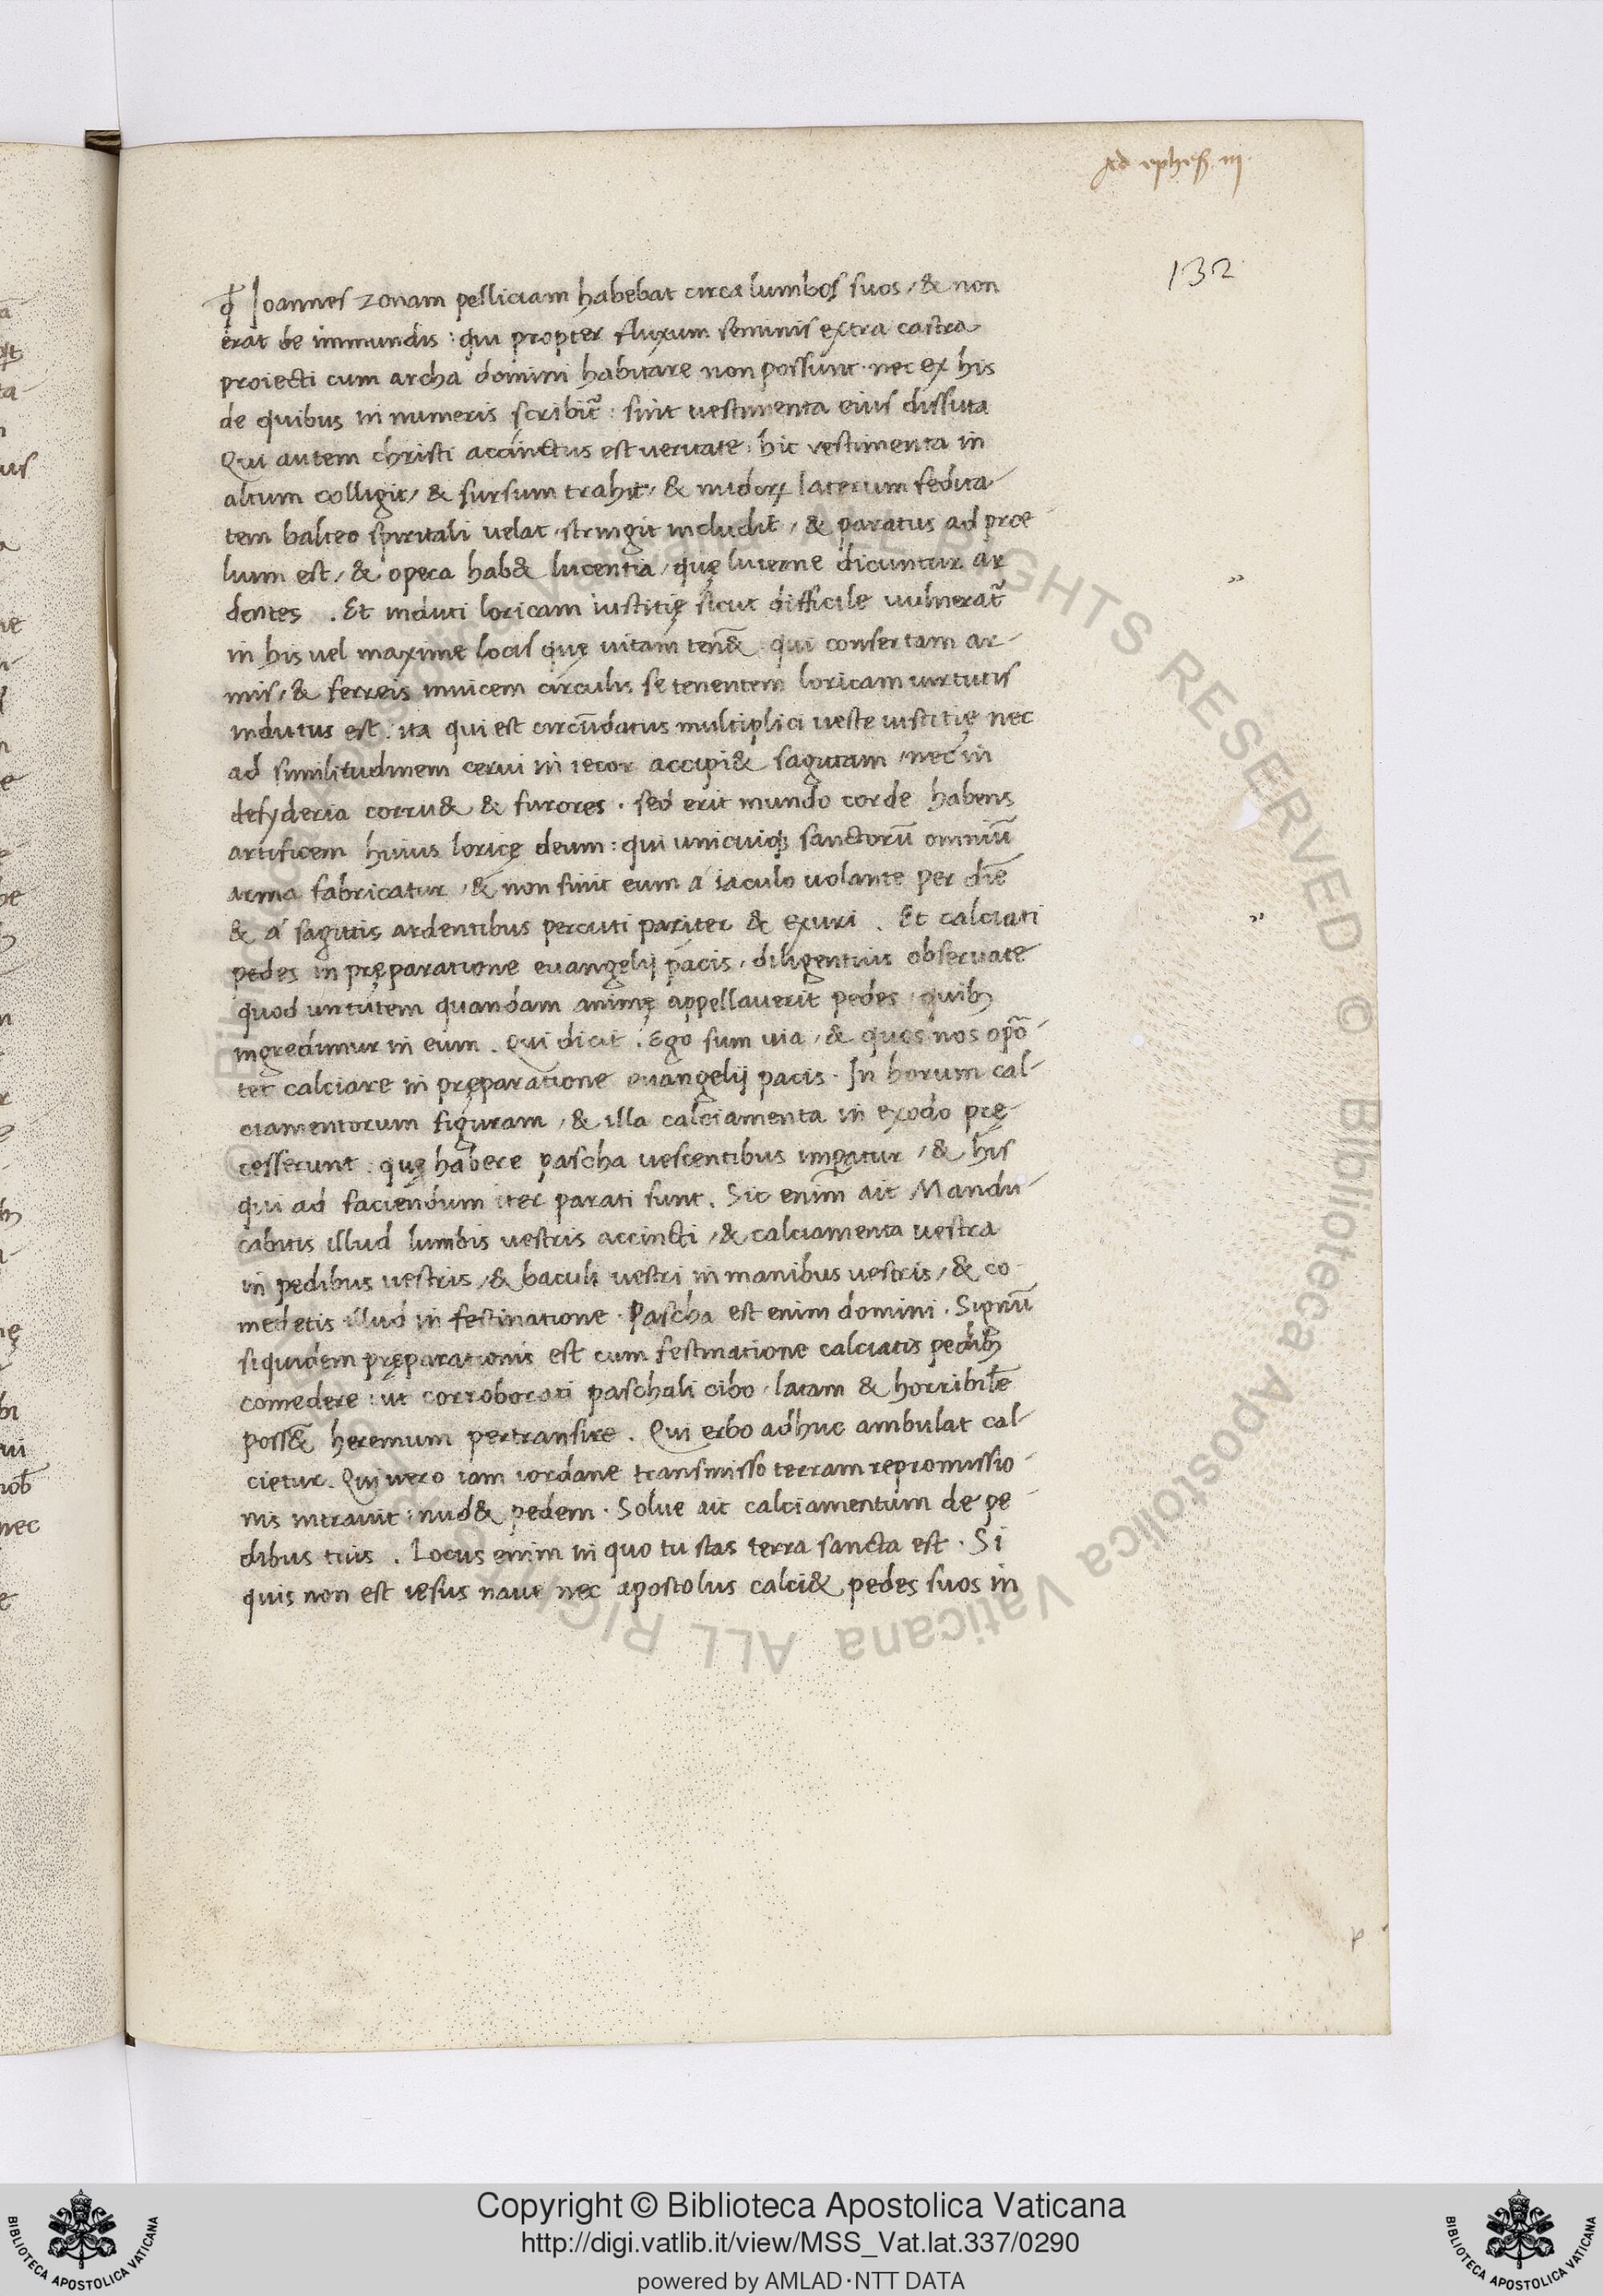 Ad ephes. iij.
132
qđ Ioannes zonam pelliciam habebat circa lumbos suos, & non
erat de immundis: qui propter fluxum seminis extra castra
proiecti cum archa domini habitare non possunt. nec ex his
de quibus in numeris scribit᷑: sint uestimenta eius dissuta
Qui autem christi accinctus est ueritate: hic vestimenta in
altum colligit, & sursum trahit, & nudorꝝ laterum fedita-
tem balteo spiritali uelat, stringit includit, & paratus ad proe-
lium est, & opera hab& lucentia, quę lucerne dicuntur ar
dentes. Et induti loricam iustitię sicut difficile uulnerat᷑
in his uel maxime locis quę uitam ten& qui consertam ar-
mis, & ferreis inuicem circulis se tenentem loricam uirtutis
indutus est: ita qui est circūdatus multiplici ueste iustitię nec
ad similitudinem cerui in iecor accipi& sagittam, nec in
desyderia corru& & furores. sed erit mundo corde habens
artificem huius loricę deum: qui unicuiqꝫ sanctorū omniū
arma fabricatur, & non sinit eum á iaculo uolante per diē
& á sagittis ardentibus percuti pariter & exuri. Et calciati
pedes in pręparatione euangelij pacis, diligentius obseruate
quod uirtutem quandam animę appellauerit pedes, quibꝫ
ingredimur in eum. Qui dicit. Ego sum uia, & quos nos opō-
tet calciare in pręparatione euangelij pacis. In horum cal-
ciamentorum figuram, & illa calciamenta in exodo prę-
cesserunt: quę habere pascha uescentibus imꝑatur, & his
qui ad faciendum iter parati sunt. Sic enim ait Mandu-
cabitis illud lumbis uestris accincti, & calciamenta uestra
in pedibus uestris, & baculi uestri in manibus uestris, & co-
medetis illud in festinatione. Pascha est enim domini. Signū
siquidem pręparationis est cum festinatione calciatis pedibꝫ
comedere: ut corroborati paschali cibo, latam & horribilē
poss& heremum pertransire. Qui erbo adhuc ambulat cal-
cietur. Qui uero iam iordane transmisso terram repromissio-
nis intrauit: nud& pedem. Solue ait calciamentum de pe-
dibus tuis. Locus enim in quo tu stas terra sancta est. Si
quis non est iesus naue nec apostolus calci& pedes suos in
© Biblioteca Apostolica Vaticana ALL RIGHTS RESERVED
Copyright © Biblioteca Apostolica Vaticana
http://digi.vatlib.it/view/MSS_Vat.lat.337/0290
powered by AMLAD·NTT DATA
BIBLIOTECA APOSTOLICA VATICANA
BIBLIOTECA APOSTOLICA VATICANA